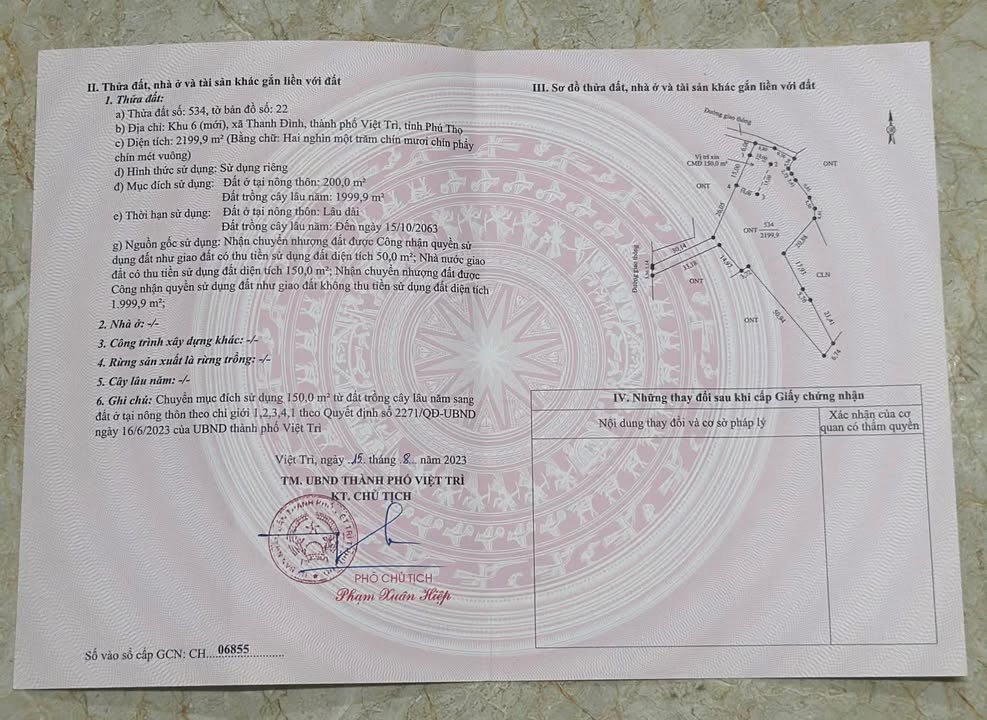 II. Thửa đất, nhà ở và tài sản khác gắn liền với đất
1. Thửa đất:
a) Thửa đất số: 534, tờ bản đồ số: 22
b) Địa chỉ: Khu 6 (mới), xã Thanh Đình, thành phố Việt Trì, tỉnh Phú Thọ
c) Diện tích: 2199,9 m² (Bằng chữ: Hai nghìn một trăm chín mươi chín phẩy
chín mét vuông)
d) Hình thức sử dụng: Sử dụng riêng
đ) Mục đích sử dụng: Đất ở tại nông thôn: 200,0 m²
Đất trồng cây lâu năm: 1999,9 m²
e) Thời hạn sử dụng: Đất ở tại nông thôn: Lâu dài
Đất trồng cây lâu năm: Đến ngày 15/10/2063
g) Nguồn gốc sử dụng: Nhận chuyển nhượng đất được Công nhận quyền sử
dụng đất như giao đất có thu tiền sử dụng đất diện tích 50,0 m²; Nhà nước giao
đất có thu tiền sử dụng đất diện tích 150,0 m²; Nhận chuyển nhượng đất được
Công nhận quyền sử dụng đất như giao đất không thu tiền sử dụng đất diện tích
1.999,9 m²;
2. Nhà ở: -/-
3. Công trình xây dựng khác: -/-
4. Rừng sản xuất là rừng trồng: -/-
5. Cây lâu năm: -/-
6. Ghi chú: Chuyển mục đích sử dụng 150,0 m² từ đất trồng cây lâu năm sang
đất ở tại nông thôn theo chỉ giới 1,2,3,4,1 theo Quyết định số 2271/QĐ-UBND
ngày 16/6/2023 của UBND thành phố Việt Trì
Việt Trì, ngày 15 tháng 8 năm 2023
TM. UBND THÀNH PHỐ VIỆT TRÌ
KT. CHỦ TỊCH
PHÓ CHỦ TỊCH
Phạm Xuân Hiệp
Số vào sổ cấp GCN: CH....06855
III. Sơ đồ thửa đất, nhà ở và tài sản khác gắn liền với đất
Đường giao thông
Vị trí xin
CMĐ 150,0 m²
ONT
ONT
15,00
10,00
1
2
3
4
20,05
ONT 534
2199,9
20,88
30,14
33,38
14,97
Đường giao thông
ONT
17,93
CLN
ONT
50,94
21,41
6,34
IV. Những thay đổi sau khi cấp Giấy chứng nhận
Nội dung thay đổi và cơ sở pháp lý
Xác nhận của cơ
quan có thẩm quyền